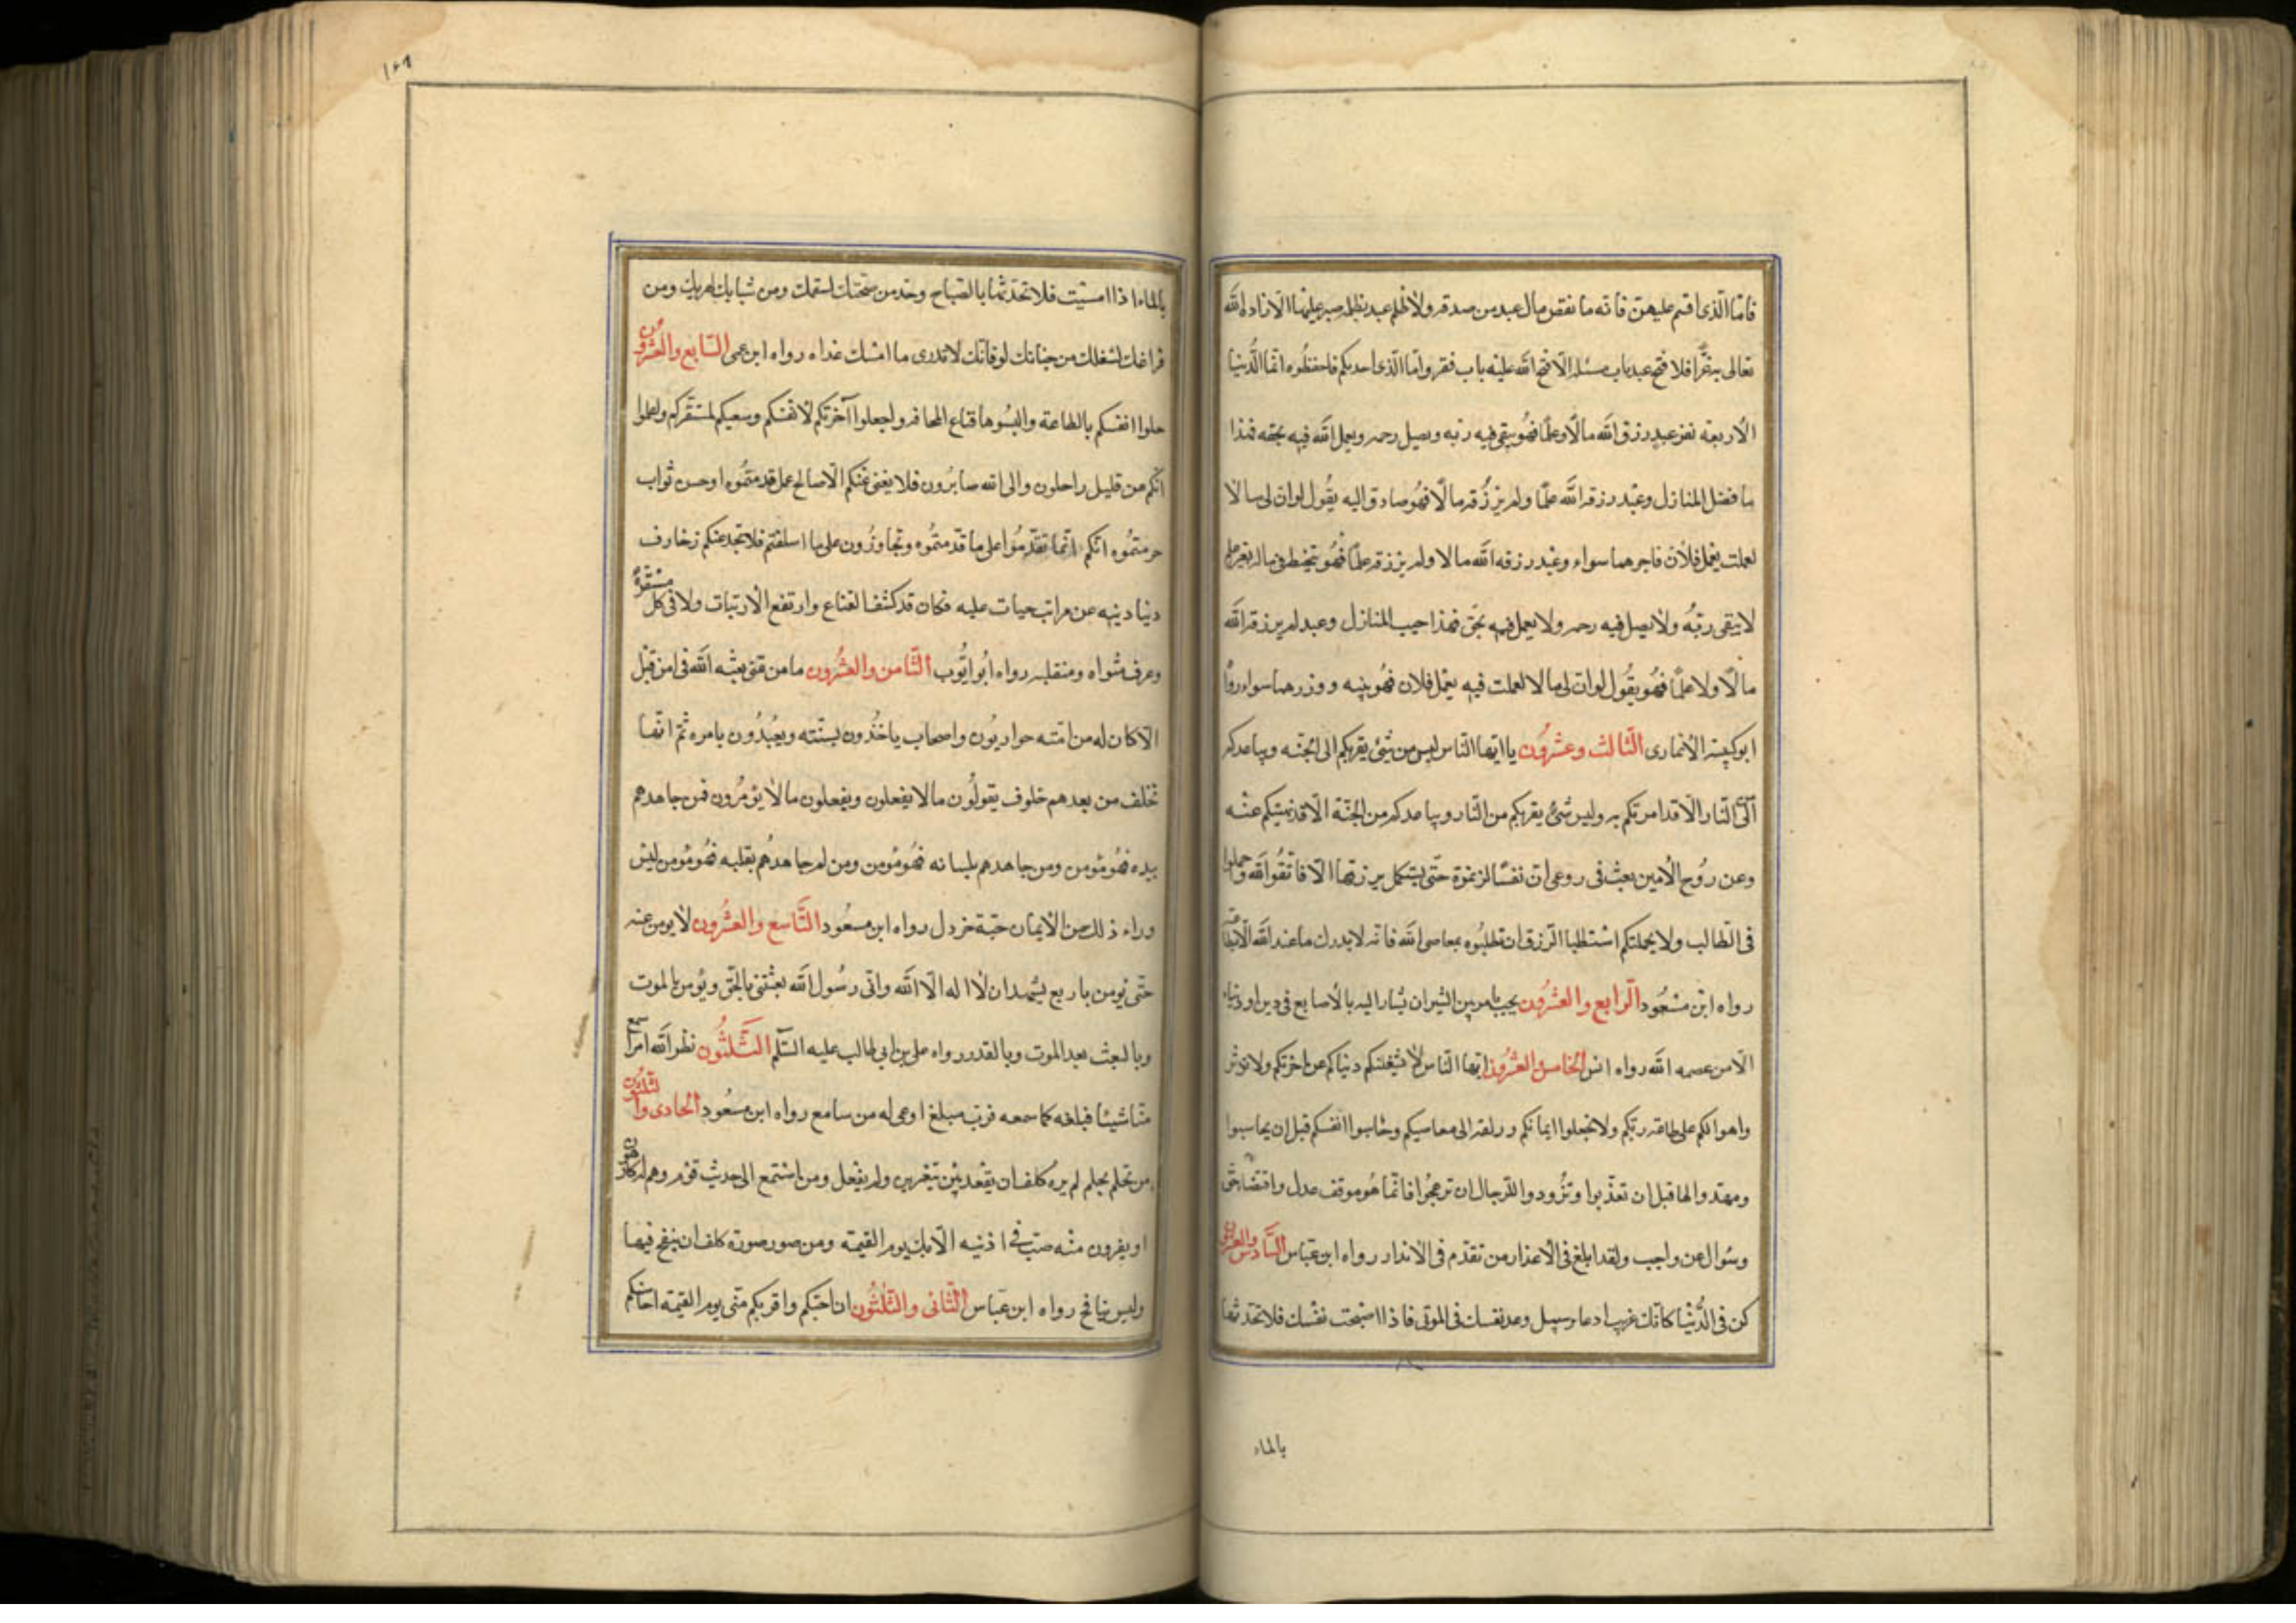 فامّا الّذى اقسم عليهنّ فانّه ما نقص مال عبد من صدقه ولا ظلم عبد بظلمه صبر عليها الّا زاده اللّه
تعالى بها عزّا فلا فتح عبد باب مسئله الّا فتح اللّه عليه باب فقر وامّا الّذى احدثكم فاحفظوه انّما الدّنيا
الاربعه نفر عبد رزق اللّه مالًا وعلمًا فهو يتقى فيه ربه ويصل رحمه ويعمل اللّه فيه بحقه فهذا
ما فضل المنازل وعبد رزقه اللّه علمًا ولم يرزقه مالًا فهو صادق اليه يقول لو ان لى مالا
لعملت بعمل فلان فاجرهما سواء وعبد رزقه اللّه مالا ولم يرزقه علمًا فهو يتخبط فى ماله بغير علم
لا يتقى ربّه ولا يصل فيه رحمه ولا يعمل فيه بحق فهذا خيب المنازل وعبد لم يرزقه اللّه
مالًا ولا علمًا فهو يقول لو ان لى مالا لعملت فيه بعمل فلان فهو بنيه ووزرهما سواء رواه
ابو كبشه الانمارى الثالث وعشرون يا ايّها النّاس ليس من شئ يقربكم الى الجنّه ويباعدكم
الى النّار الّا قد امرتكم به وليس شئ يقربكم من النّار ويباعدكم من الجنّة الّا قد نهيتكم عنه
وعن روح الامين بعث فى روعى ان نفسًا لن تموت حتّى يستكمل رزقها الا فاتّقوا اللّه وحملوا
فى الطّالب ولا يحملتكم استطلبا الرّزق ان تطلبوه بمعاصى اللّه فانّه لا يدرك ما عند اللّه الّا بطاعته
رواه ابن مسعود الرابع والعشرون يحب بامر من الشر ان يشار اليه بالاصابع فى دين او دنياه
الّا من عصمه اللّه رواه انس الخامس والعشرون ايّها النّاس لا تشغلنكم دنياكم عن اخرتكم ولا تؤثر
واهوائكم على طاعة ربّكم ولا تجعلوا ايمانكم ورلفه الى معاصيكم وحاسبوا انفسكم قبل ان يحاسبوا
ومهّدوا لها قبل ان تعذّبوا وتزودوا للترحال ان ترعجوا فانّما هو موقف عدل واقتضاء حق
وسؤال عن واجب ولقد ابلغ فى الاعذار من تقدّم فى الانذار رواه ابن عبّاس السّادس والعشرون
كن فى الدّنيا كانّك غريب او عابر سبيل وعد نفسك فى الموتى فاذا اصبحت نفسك فلا تحدثها
بالماء
١٠٩
بالماء اذا امسيت فلا تحدثها بالصّباح وخذ من صحّتك لسقمك ومن شبابك لهرمك ومن
فراغك لشغلك من حياتك لوفاتك فانّك لا تدرى ما اسمك غداه رواه ابن عمر السّابع والعشرون
حلوا انفسكم بالطاعة والبسوها قناع المخافه واجعلوا آخرتكم لانفسكم وسعيكم لمستقركم واعملوا
انّكم من قليل راحلون والى اللّه صائرون فلا يغنى عنكم الّا صالح عمل قدّمتموه او حسن ثواب
حرمتموه انّكم انّما تقدموا على ما قدّمتموه وتجاوزون على ما اسلفتم فلا تخدعنكم زخارف
دنيا دنيه عن مراتب جنات عليه فكان قد كشف القناع وارتفع الارتياب ولاقى كل مستقرّه
وعرف مثواه ومنقلبه رواه ابو ايّوب الثّامن والعشرون ما من نبى بعثه اللّه فى امن قبل
الّا كان له من امّته حواريون واصحاب ياخذون بسنّته ويعبدون بامره ثمّ انّها
تخلف من بعدهم خلوف يقولون ما لا يفعلون ويفعلون ما لا يؤمرون فمن جاهدهم
بيده فهو مؤمن ومن جاهدهم بلسانه فهو مؤمن ومن لم جاهدهم بقلبه فهو مؤمن ليس
وراء ذلك من الايمان حبّة خردل رواه ابن مسعود التّاسع والعشرون لا يومن عبد
حتّى يؤمن باربع يشهد ان لا اله الّا اللّه وانّى رسول اللّه بعثنى بالحق ويؤمن بالموت
وبالبعث بعد الموت وبالقدر رواه على بن ابى طالب عليه السّلم الثّلثون نظر اللّه امرأ سمع
منّا شيئا فبلغه كما سمعه فربّ مبلغ اوعى له من سامع رواه ابن مسعود الحادى والثلثون
من تحلم بحلم لم يره كلف ان يعقد بين شعيرين ولم يفعل ومن استمع الى حديث قوم وهم له كارهون
او يفرون منه صب فى اذنيه الآنك يوم القيمة ومن صور صورة كلف ان ينفخ فيها
وليس بنافخ رواه ابن عبّاس الثّانى والثلثون ان احبكم واقربكم منّى يوم القيمة احاسنكم